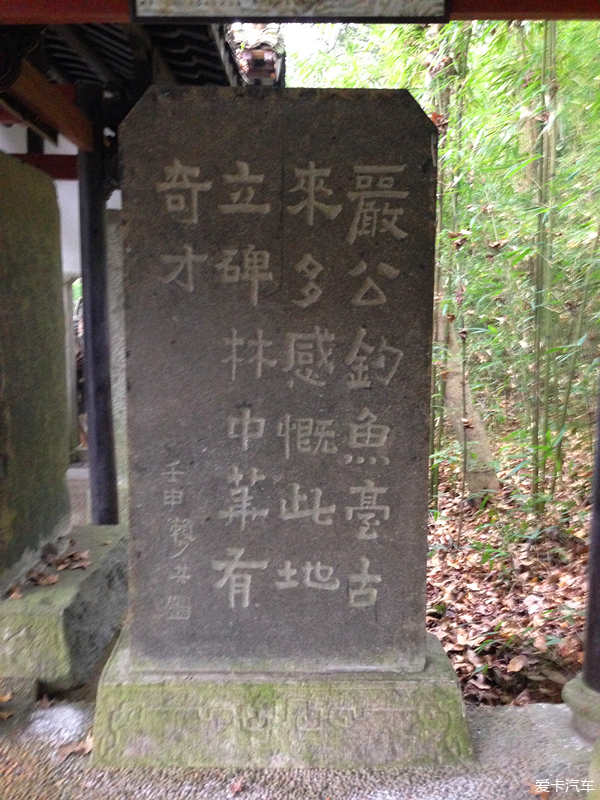 嚴公釣魚臺古
來多感慨此地
立碑林中華有
奇才
壬申
爱卡汽车